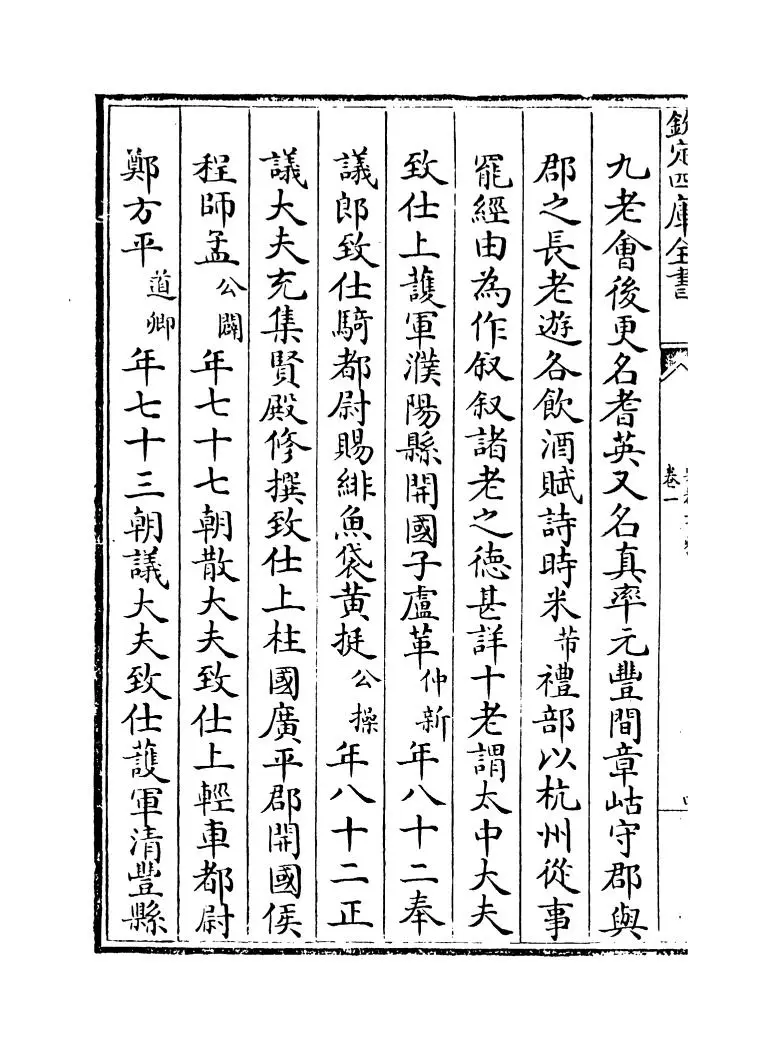 欽定四庫全書
卷一
九老會後更名耆英又名真率元豐間章岵守郡與
郡之長老遊各飲酒賦詩時米芾禮部以杭州從事
罷經由為作叙叙諸老之德甚詳十老謂太中大夫
致仕上護軍濮陽縣開國子盧革仲新年八十二奉
議郎致仕騎都尉賜緋魚袋黄挺公操年八十二正
議大夫充集賢殿修撰致仕上柱國廣平郡開國侯
程師孟公闢年七十七朝散大夫致仕上輕車都尉
鄭方平道卿年七十三朝議大夫致仕護軍清豐縣